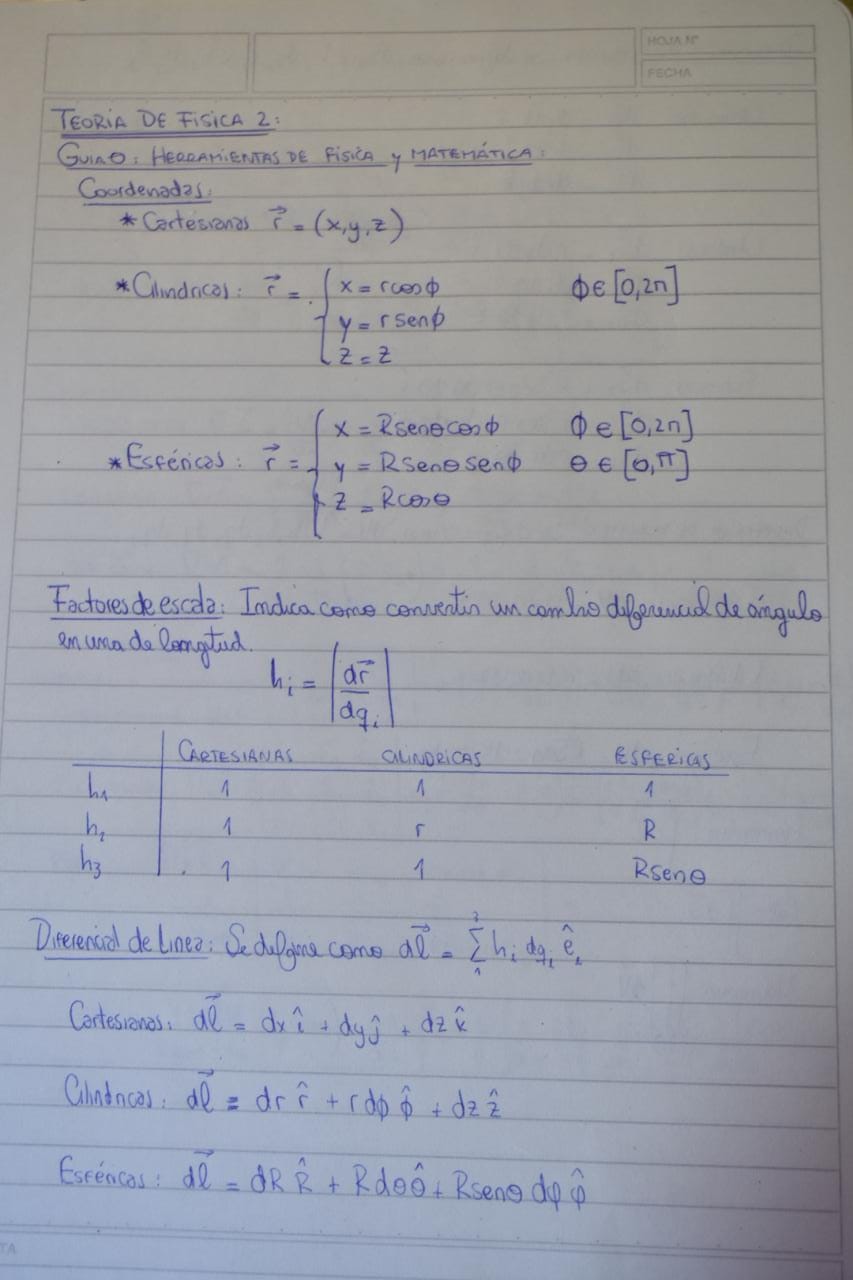 HOJA Nº
FECHA
TEORIA DE FISICA 2:
GUIA 0: HERRAMIENTAS DE FÍSICA y MATEMÁTICA:
Coordenadas:
* Cartesianas r⃗ = (x,y,z)
* Cilindricas: r⃗ = { x = r cos ϕ    ϕ ∈ [0,2π]
y = r sen ϕ
z = z
* Esféricas: r⃗ = { x = R sen θ cos ϕ    ϕ ∈ [0,2π]
y = R sen θ sen ϕ    θ ∈ [0,π]
z = R cos θ
Factores de escala: Indica como convertir un cambio diferencial de ángulo
en una de longitud.
h_i = |dr⃗/dq_i|
CARTESIANAS    CILINDRICAS    ESFERICAS
h₁    1    1    1
h₂    1    r    R
h₃    1    1    R sen θ
Diferencial de Linea: Se define como dl⃗ = Σ₁³ h_i dq_i ê_i
Cartesianas: dl⃗ = dx î + dy ĵ + dz k̂
Cilindricas: dl⃗ = dr r̂ + r dϕ ϕ̂ + dz ẑ
Esféricas: dl⃗ = dR R̂ + R dθ θ̂ + R sen θ dφ φ̂
TA